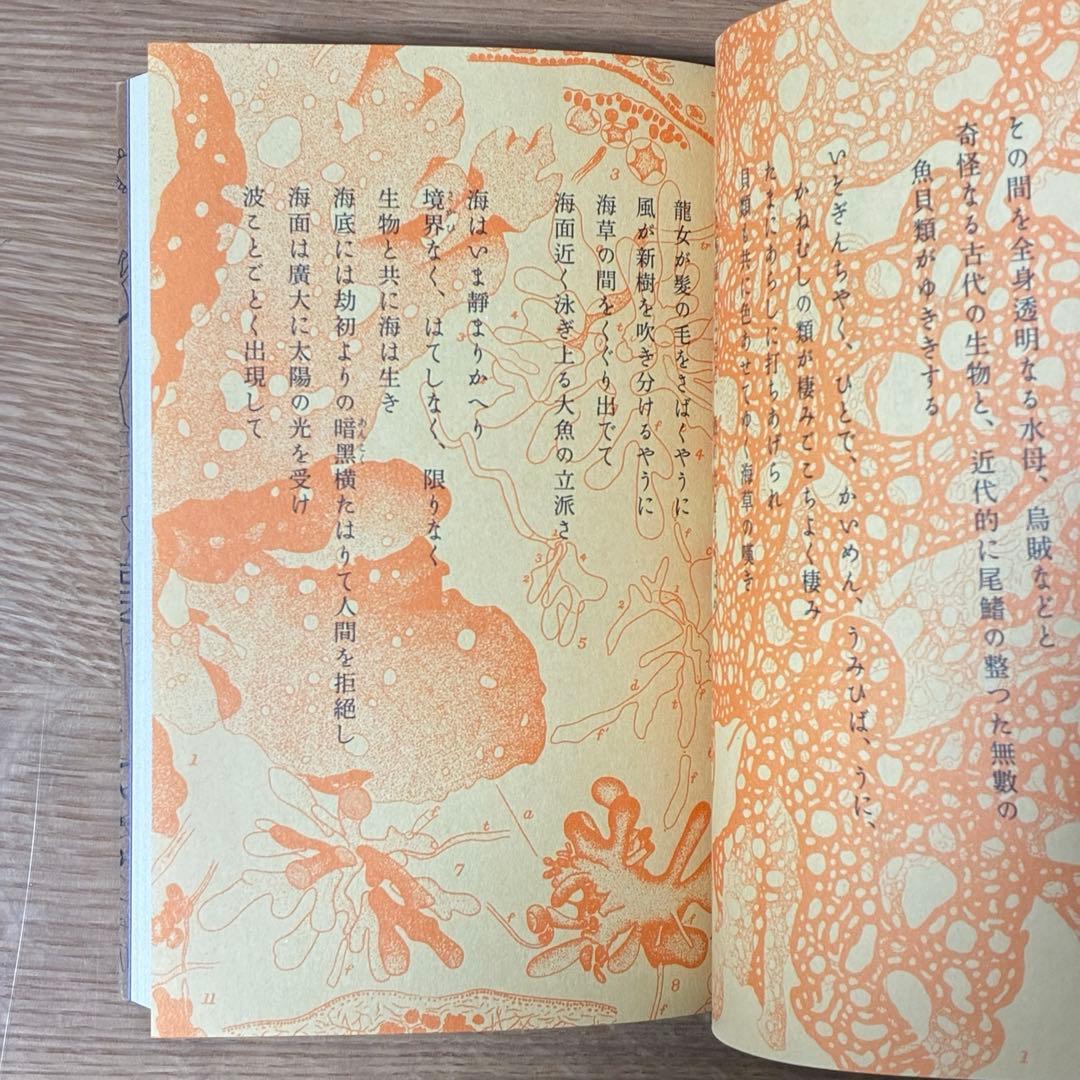 その間を全身透明なる水母、烏賊などと
奇怪なる古代の生物と、近代的に尾鰭の整つた無數の
魚貝類がゆききする
いそぎんちやく、ひとで、かいめん、うみひば、うに、
かねむしの類が棲みごこちよく棲み
たまにあらしに打ちあげられ
貝類も共に色あせてゆく海草の嘆き
龍女が髪の毛をさばくやうに
風が新樹を吹き分けるやうに
海草の間をくぐり出でて
海面近く泳ぎ上る大魚の立派さ
海はいま靜まりかへり
境界なく、はてしなく、限りなく
生物と共に海は生き
海底には劫初よりの暗黑横たはりて人間を拒絶し
あんこく
海面は廣大に太陽の光を受け
波ことごとく出現して
3
4
5
1
7
8
11
1